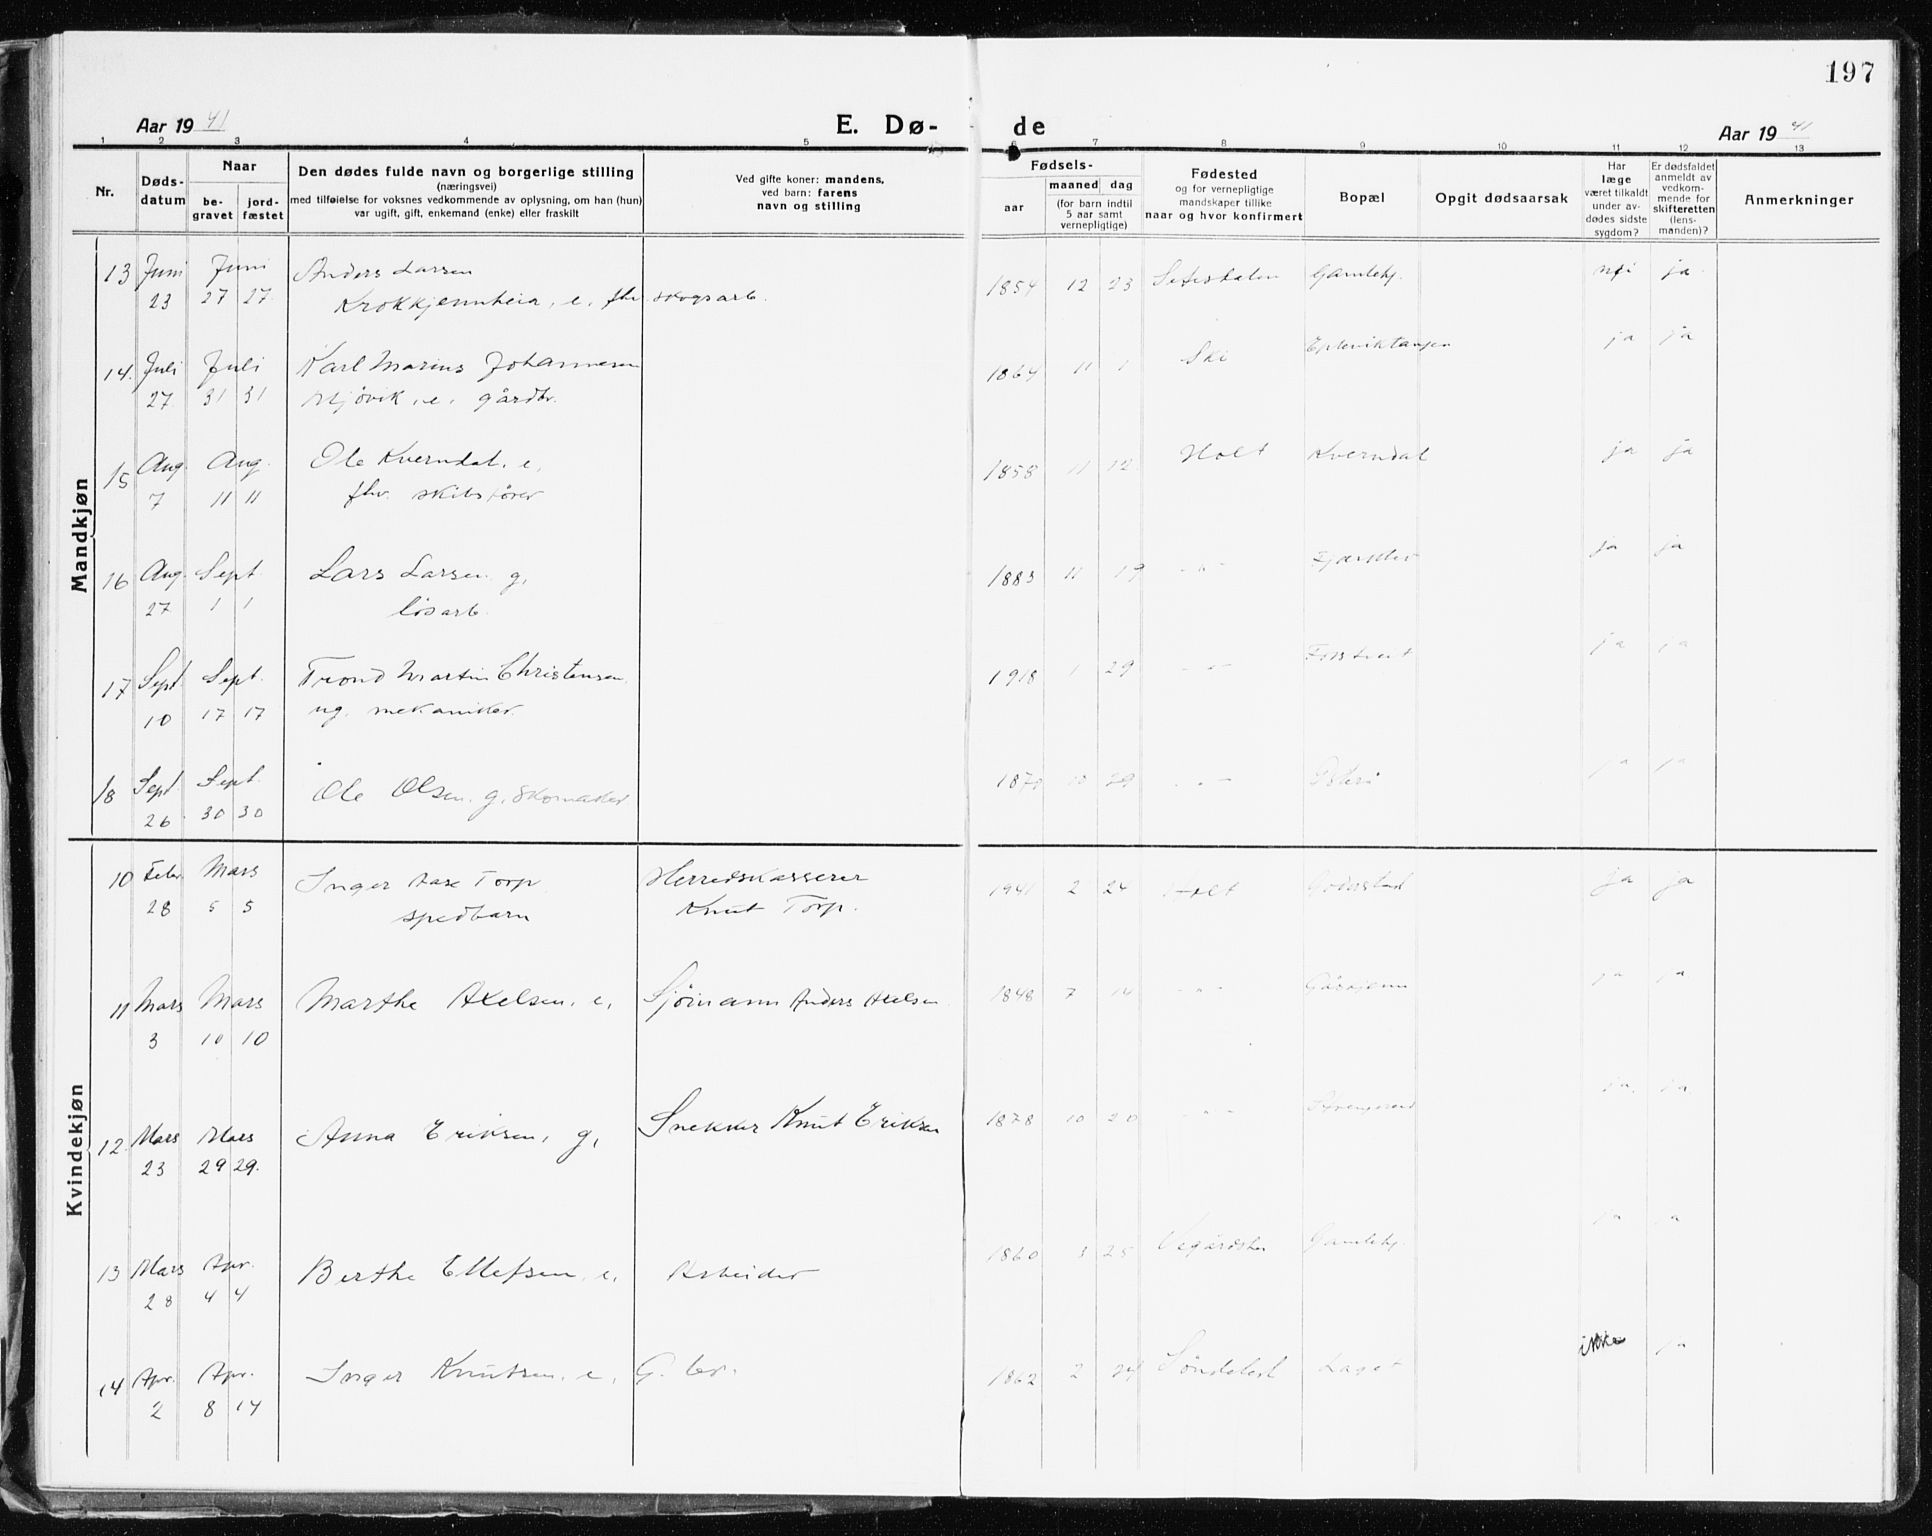 197
Aar 19 41
E. Dø-
de
Aar 19 41
1 2 3 4 5 6 7 8 9 10 11 12 13
Nr.
Døds-
datum
Naar
be-
gravet
jord-
fæstet
Den dødes fulde navn og borgerlige stilling
(næringsvei)
med tilføielse for voksnes vedkommende av oplysning, om han (hun)
var ugift, gift, enkemand (enke) eller fraskilt
Ved gifte koner: mandens,
ved barn: farens
navn og stilling
Fødsels-
aar
maaned dag
(for barn indtil
5 aar samt
vernepligtige)
Fødested
og for vernepligtige
mandskaper tillike
naar og hvor konfirmert
Bopæl
Opgit dødsaarsak
Har
læge
været tilkaldt
under av-
dødes sidste
sygdom?
Er dødsfaldet
anmeldt av
vedkom-
mende for
skifteretten
(lens-
manden)?
Anmerkninger
Mandkjøn
13 Juni Juni Anders Larsen 1854 12 23 Setesdalen Gamlehj. nei ja
23 27 27 Krokkjennheia, e. fhv skogsarb.
14. Juli Juli Karl Marius Johannesen 1864 11 1 Ski Epleviktangen ja ja
27 31 31 Mjövik, e. gårdbr.
15 Aug. Aug. Ole Kverndal, e, 1858 11 12 Holt Kverndal ja ja
7 11 11 fhv. skibsfører
16 Aug. Sept. Lars Larsen g, 1883 11 19 - " - ja ja
27 1 1 løsarb.
17 Sept Sept. Trond Martin Christensen, 1918 1 29 - " - ja ja
10 17 17 ug. mekaniker.
18 Sept. Sept. Ole Olsen, g, skomaker 10 29 - " - ja ja
26 30 30
Kvindekjøn
10 Febr. Mars Inger Aase Torp Herredskasserer 1941 2 24 Holt Goderstad ja ja
28 5 5 spedbarn Knut Torp.
11 Mars Mars Marthe Axelsen, e, Sjømann Anders Axelsen 1848 7 14 - " - ja ja
3 10 10
12. Mars Mars Anna Eriksen, g, Snekker Knut Eriksen 1878 10 20 - " - ja ja
23 29 29.
13 Mars Apr. Berthe Ellefsen, e, Arbeider 1860 3 25 Vegårdshei Gamlehj. ja ja
28 4 4
14 Apr. Apr. Inger Knutsen, e, G. br. 1862 2 24 Søndeled Laget ikke ja
2 8 14